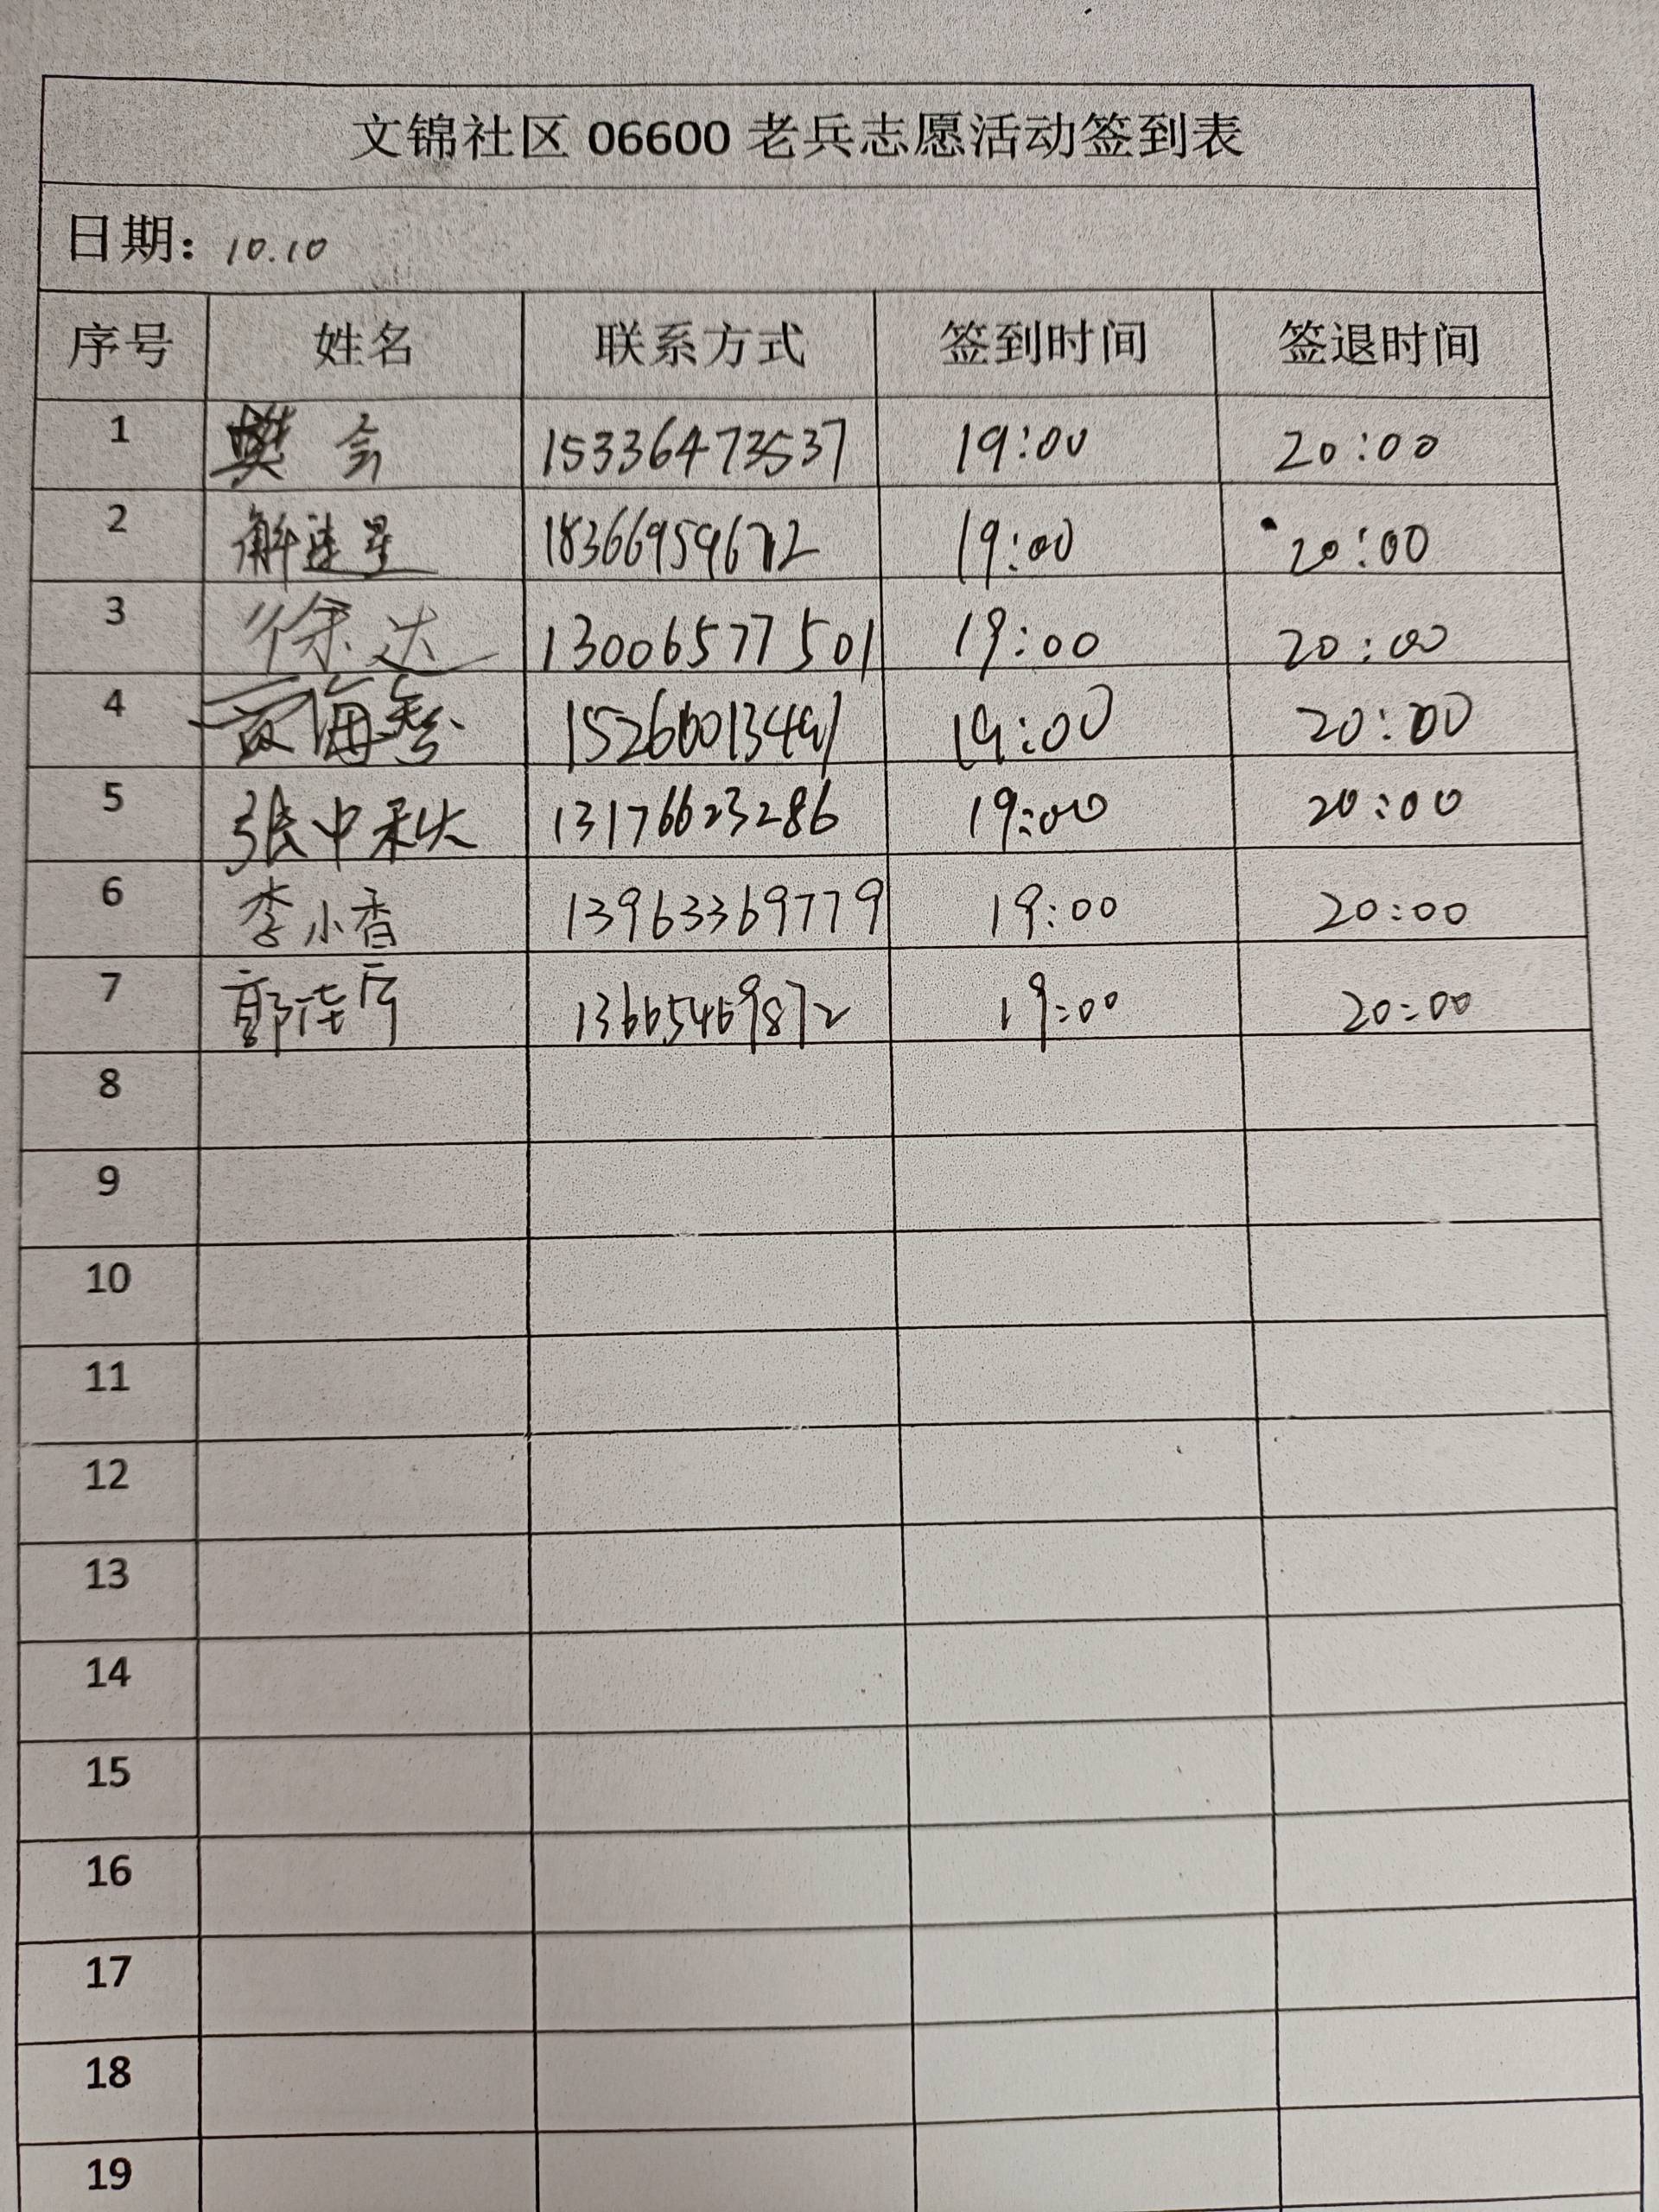 文锦社区 06600 老兵志愿活动签到表
日期：10.10
序号 姓名 联系方式 签到时间 签退时间
1 樊会 15336473537 19:00 20:00
2 解连星 19:00 20:00
3 徐达 13006577501 19:00 20:00
4 19:00 20:00
5 张中秋 13176623286 19:00 20:00
6 李小香 13963369779 19:00 20:00
7 郭 13665469872 19:00 20:00
8
9
10
11
12
13
14
15
16
17
18
19